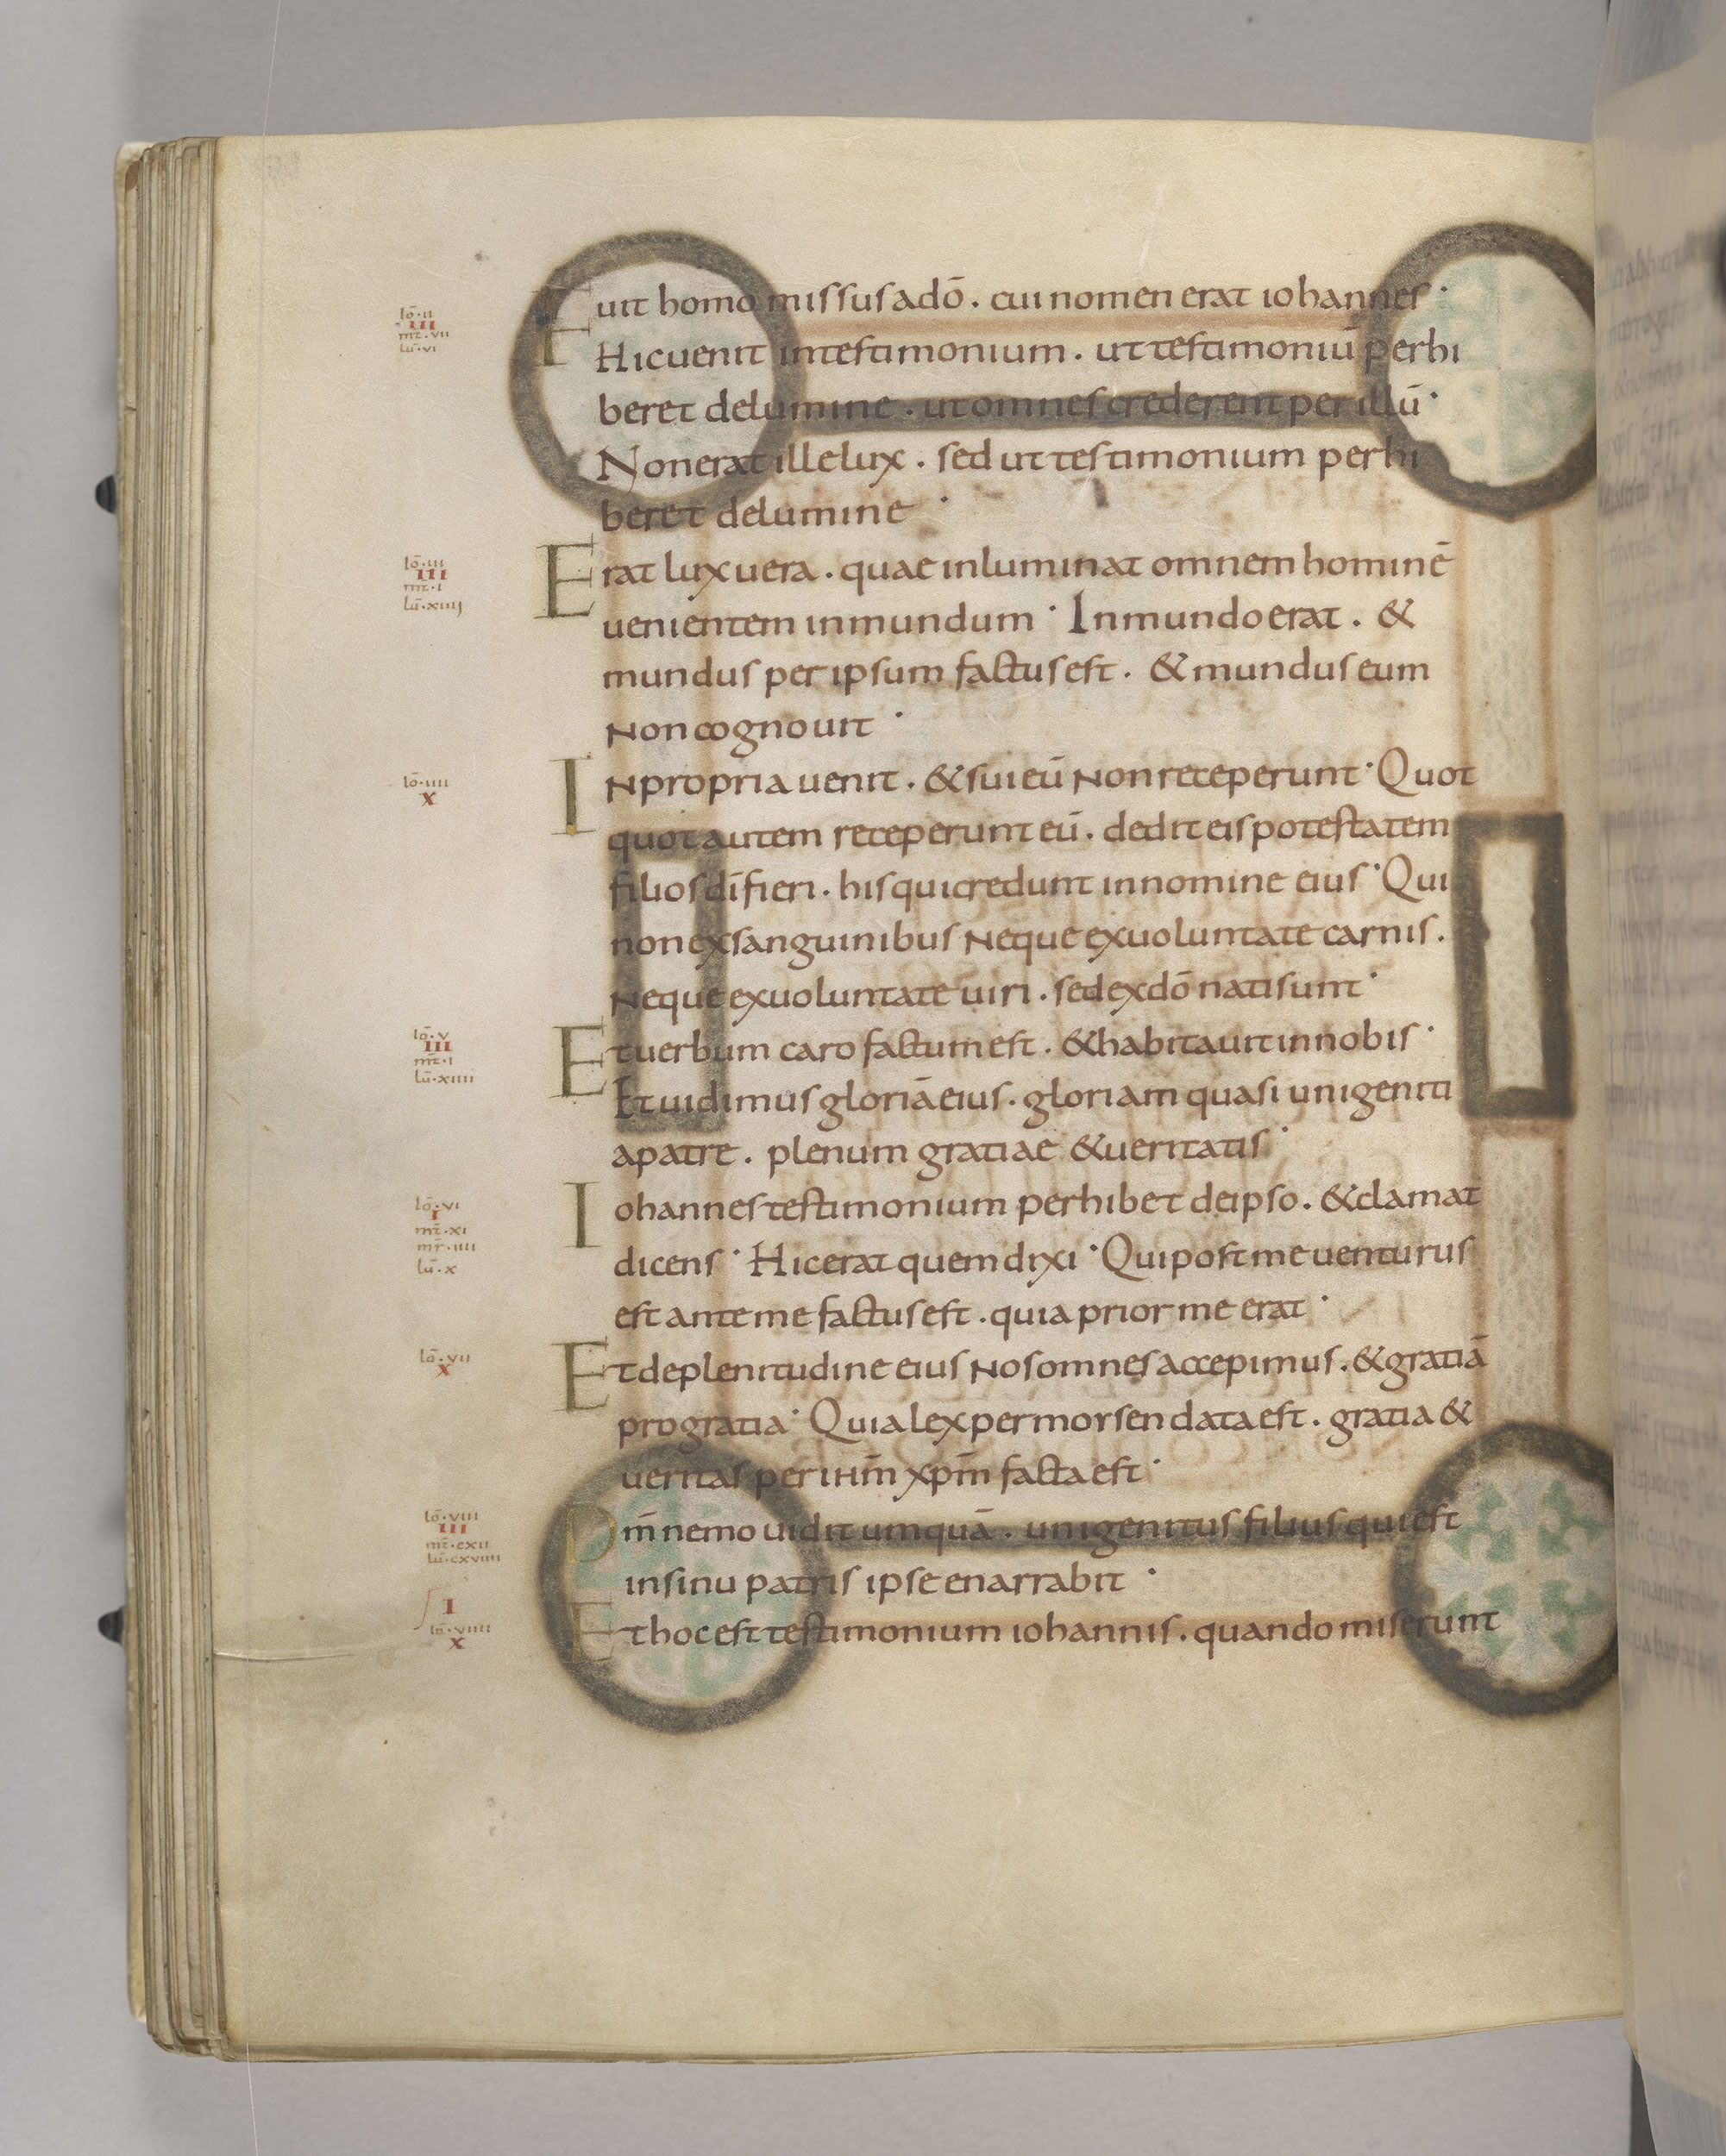 Fuit homo missus a dō. cui nomen erat iohannes·
Hic uenit in testimonium. ut testimoniū perhi
beret de lumine. ut omnes crederent per illū·
Non erat ille lux. sed ut testimonium perhi
beret de lumine·
Erat lux uera. quae inluminat omnem hominē
uenientem in mundum· In mundo erat. &
mundus per ipsum factus est. & mundus eum
non cognouit·
In propria uenit. & sui eū non receperunt· Quot
quot autem receperunt eū. dedit eis potestatem
filios dī fieri. his qui credunt in nomine eius· Qui
non ex sanguinibus neque ex uoluntate carnis.
neque ex uoluntate uiri. sed ex dō nati sunt·
Et uerbum caro factum est. & habitauit in nobis·
Et uidimus gloriā eius. gloriam quasi unigeniti
a patre. plenum gratiae & ueritatis·
Iohannes testimonium perhibet de ipso. & clamat
dicens· Hic erat quem dixi· Qui post me uenturus
est ante me factus est. quia prior me erat·
Et de plenitudine eius nos omnes accepimus. & gratiā
pro gratia· Quia lex per morsen data est. gratia &
ueritas per ihm̄ xpm̄ facta est·
Dm̄ nemo uidit umquā. unigenitus filius qui est
in sinu patris ipse enarrabit·
Et hoc est testimonium iohannis. quando miserunt
Iō·II
III
mt̄·VII
Lū·VI
Iō·III
III
mt̄·I
Lū·XIIII
Iō·IIII
X
Iō·V
III
mt̄·I
Lū·XIIII
Iō·VI
I
mt̄·XI
mr̄·IIII
Lū·X
Iō·VII
X
Iō·VIII
III
mt̄·CXII
Lū·CXVIIII
I
Iō·VIIII
X